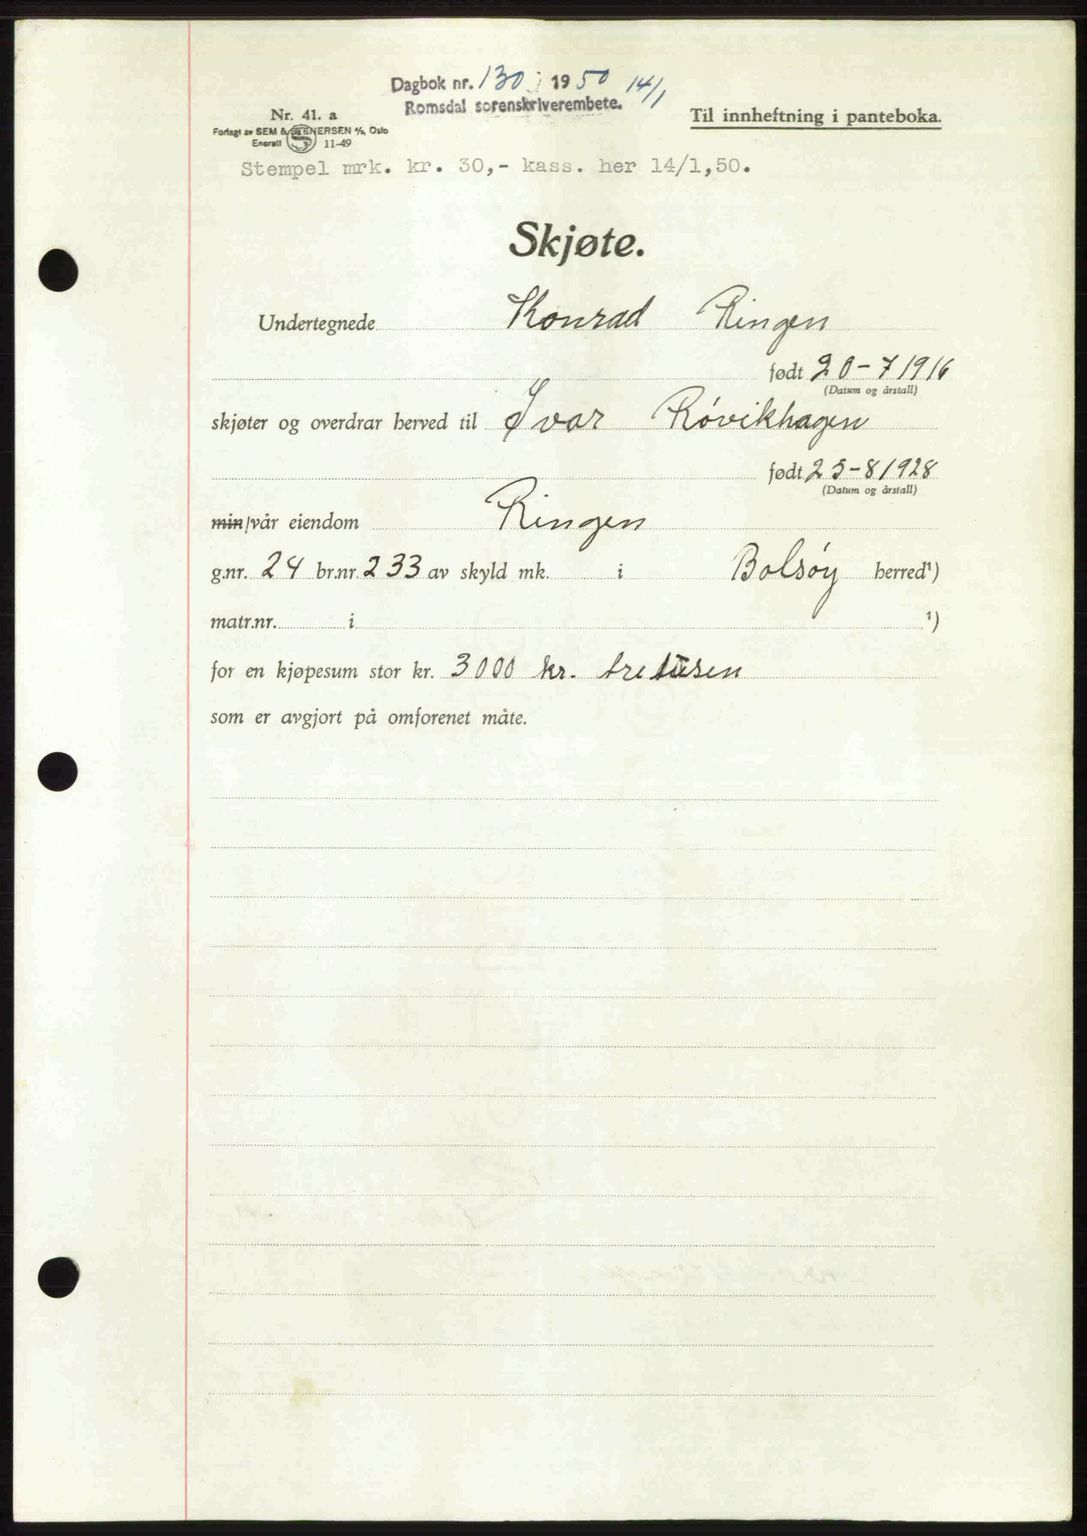 Dagbok nr. 130 1950 14/1
Romsdal sorenskriverembete.
Nr. 41. a
Til innheftning i panteboka.
Forlagt av SEM & STENERSEN A/S, Oslo
Enerett 11-49
Stempel mrk. kr. 30,- kass. her 14/1,50.
Skjøte.
Undertegnede Konrad Ringen
født 20-7 1916
(Datum og årstall)
skjøter og overdrar herved til Ivar Røvikhagen
født 25-8 1928
(Datum og årstall)
min/vår eiendom Ringen
g.nr. 24 br.nr. 233 av skyld mk. i Bolsøy herred¹)
matr.nr. i ¹)
for en kjøpesum stor kr. 3000 kr. tretusen
som er avgjort på omforenet måte.